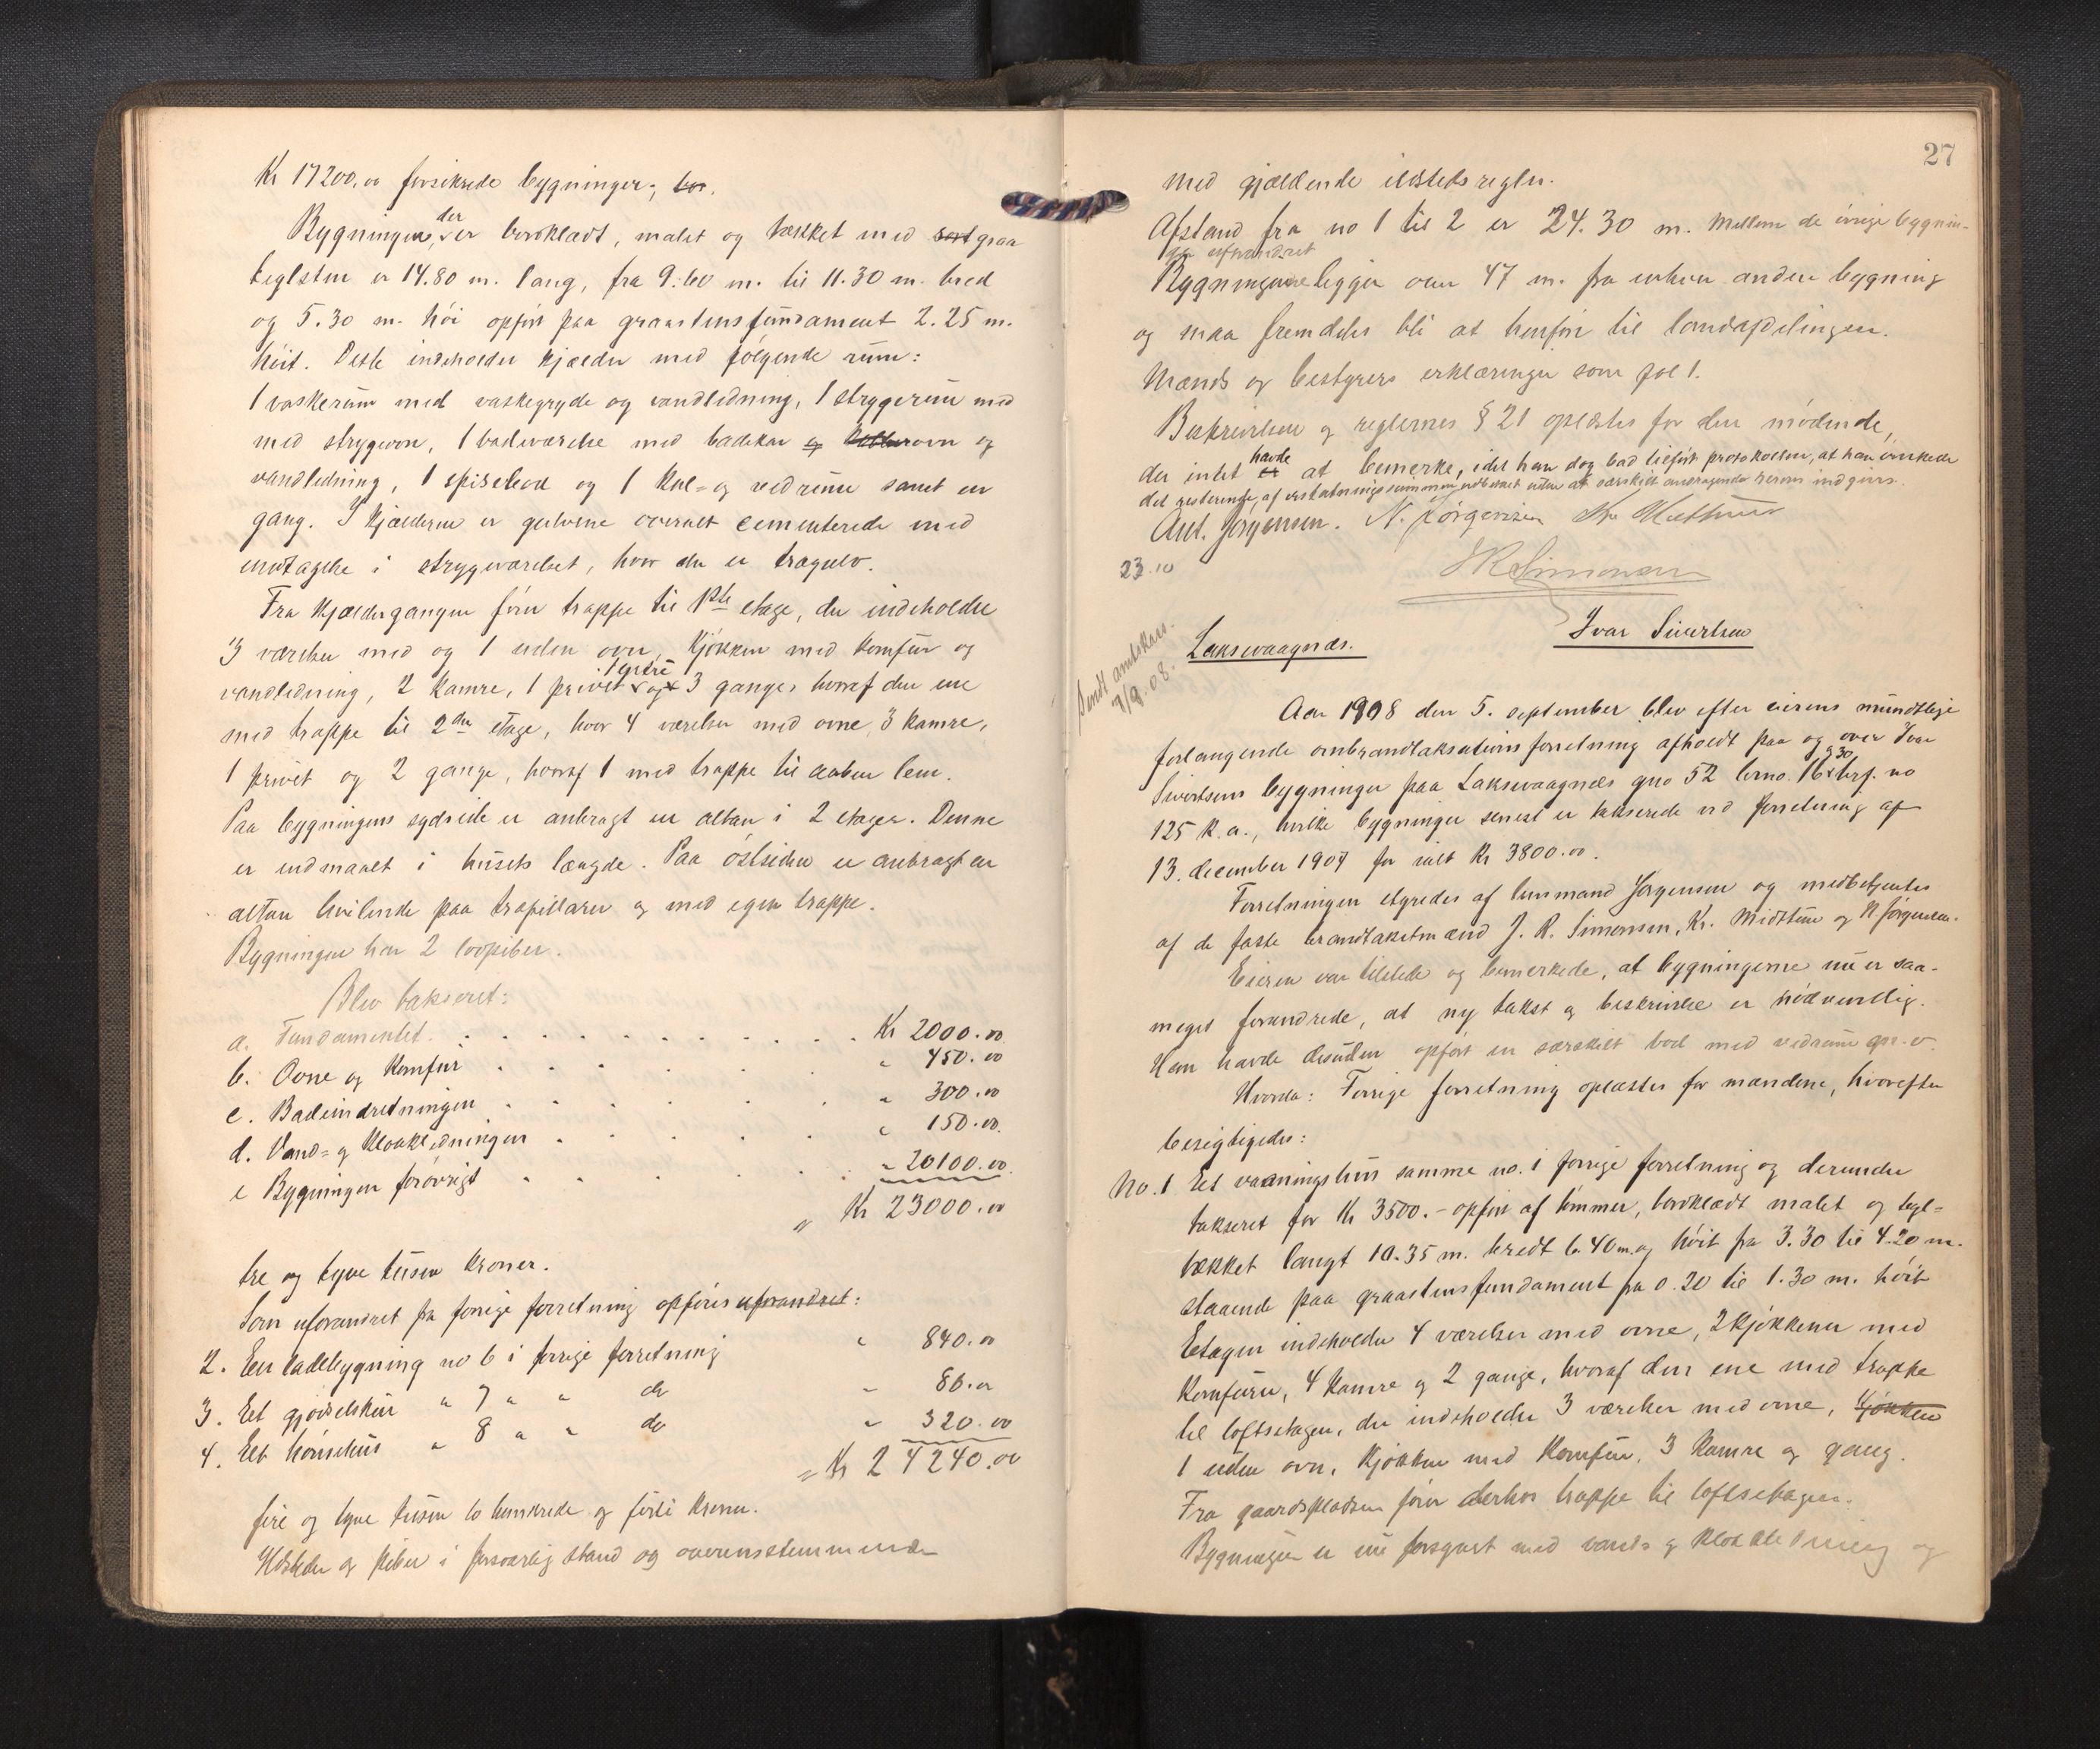 Kr 17200.00 forsikrede bygninger;
Bygningen, der er bordklædt, malet og tækket med sort graa
teglsten er 14.80 m. lang, fra 9.60 m. til 11.30 m. bred
og 5.30 m. høi opført paa graastensfundament 2.25 m.
høit. Dette indeholder kjælder med følgende rum:
1 vaskerum med vaskegryde og vandledning, 1 strygerum med
med strygeovn, 1 badeværelse med badekar og ovn og
vandledning, 1 spisebod og 1 kul- og vedrum samt en
gang. I kjælderen er gulvene overalt cementerede med
undtagelse i strygeværelset, hvor der er trægulv.
Fra kjældergangen fører trappe til 1ste etage, der indeholder
3 værelser med og 1 uden ovn, kjøkken med komfur og
vandledning, 2 kamre, 1 privet, 1 entre og 3 gange, hvoraf den ene
med trappe til 2den etage, hvor 4 værelser med ovne, 3 kamre,
1 privet og 2 gange, hvoraf 1 med trappe til aaben lem.
Paa bygningens sydside er anbragt en altan i 2 etager. Denne
er indmaalt i husets længde. Paa østsiden er anbragt en
altan hvilende paa træpillarer og med egen trappe.
Bygningen har 2 lovpiber.
Blev takseret:
a. Fundamentet . . . . Kr 2000.00
b. Ovne og komfur . . . . " 450.00
c. Badeindretningen . . . . " 300.00
d. Vand- og kloakledningen . . . . " 150.00
e Bygningen forøvrigt . . . . " 20100.00
" Kr 23000.00
tre og tyve tusen kroner.
Som uforandret fra forrige forretning opføres uforandret:
2. En ladebygning no 6 i forrige forretning " 840.00
3. Et gjødselskur " 7 " " do " 80.00
4. Et hønsehus " 8 " " do " 320.00
= Kr 24240.00
fire og tyve tusen to hundrede og firti kroner.
Ildsteder og piber i forsvarlig stand og overensstemmende
27
med gjældende ildstedsregler.
Afstand fra no 1 til 2 er 24.30 m. Mellem de øvrige bygnin-
ger uforandret
Bygningerne ligger over 47 m. fra enhver anden bygning
og maa fremdeles bli at henføre til landafdelingen.
Mænds og bestyrers erklæringer som fol 1.
Beskrivelsen og reglernes § 21 oplæstes for den mødende,
der intet havde at bemerke, idet han dog bad tilført protokollen, at han ønskede
det resterende af erstatningssummen udbetalt uden at særskilt andragende herom indgives.
Ant. Jørgensen. N. Jørgensen Kr. Midttun
23.10
J R Simonsen
Ivar Sivertsen
Laksevaagnæs.
Sendt amtskass.
9/9.08.
Aar 1908 den 5. september blev efter eierens mundtlige
forlangende ombrandtaksationsforretning afholdt paa og over Ivar
Sivertsens bygninger paa Laksevaagnæs gno 52 brno. 16 a 30 brf. no
125 k.a., hvilke bygninger senest er takserede ved forretning af
13. december 1907 for ialt Kr 3800.00.
Forretningen styredes af lensmand Jørgensen og medbetjentes
af de faste brandtakstmænd J. R. Simonsen, Kr. Midttun og N Jørgensen.
Eieren var tilstede og bemerkede, at bygningerne nu er saa-
meget forandrede, at ny takst og beskrivelse er nødvendig.
Han havde desuden opført en særskilt bod med vedrum m.v.
Hvorda: Forrige forretning oplæstes for mændene, hvorefter
besigtigedes:
No. 1 Et vaaningshus samme no. i forrige forretning og derunder
takseret for Kr 3500.- opført af tømmer, bordklædt malet og tegl-
tækket langt 10.35 m. bredt 6.40 m. og høit fra 3.30 til 4.20 m.
staaende paa graastensfundament fra 0.20 til 1.30 m. høit
Etagen indeholder 4 værelser med ovne, 2 kjøkkener med
komfurer, 4 kamre og 2 gange, hvoraf den ene med trappe
til loftsetagen, der indeholder 3 værelser med ovne, kjøkken
1 uden ovn, kjøkken med komfur, 3 kamre og gang.
Fra gaardspladsen fører derhos trappe til loftsetagen.
Bygningen er nu forsynet med vand- og kloakledning og